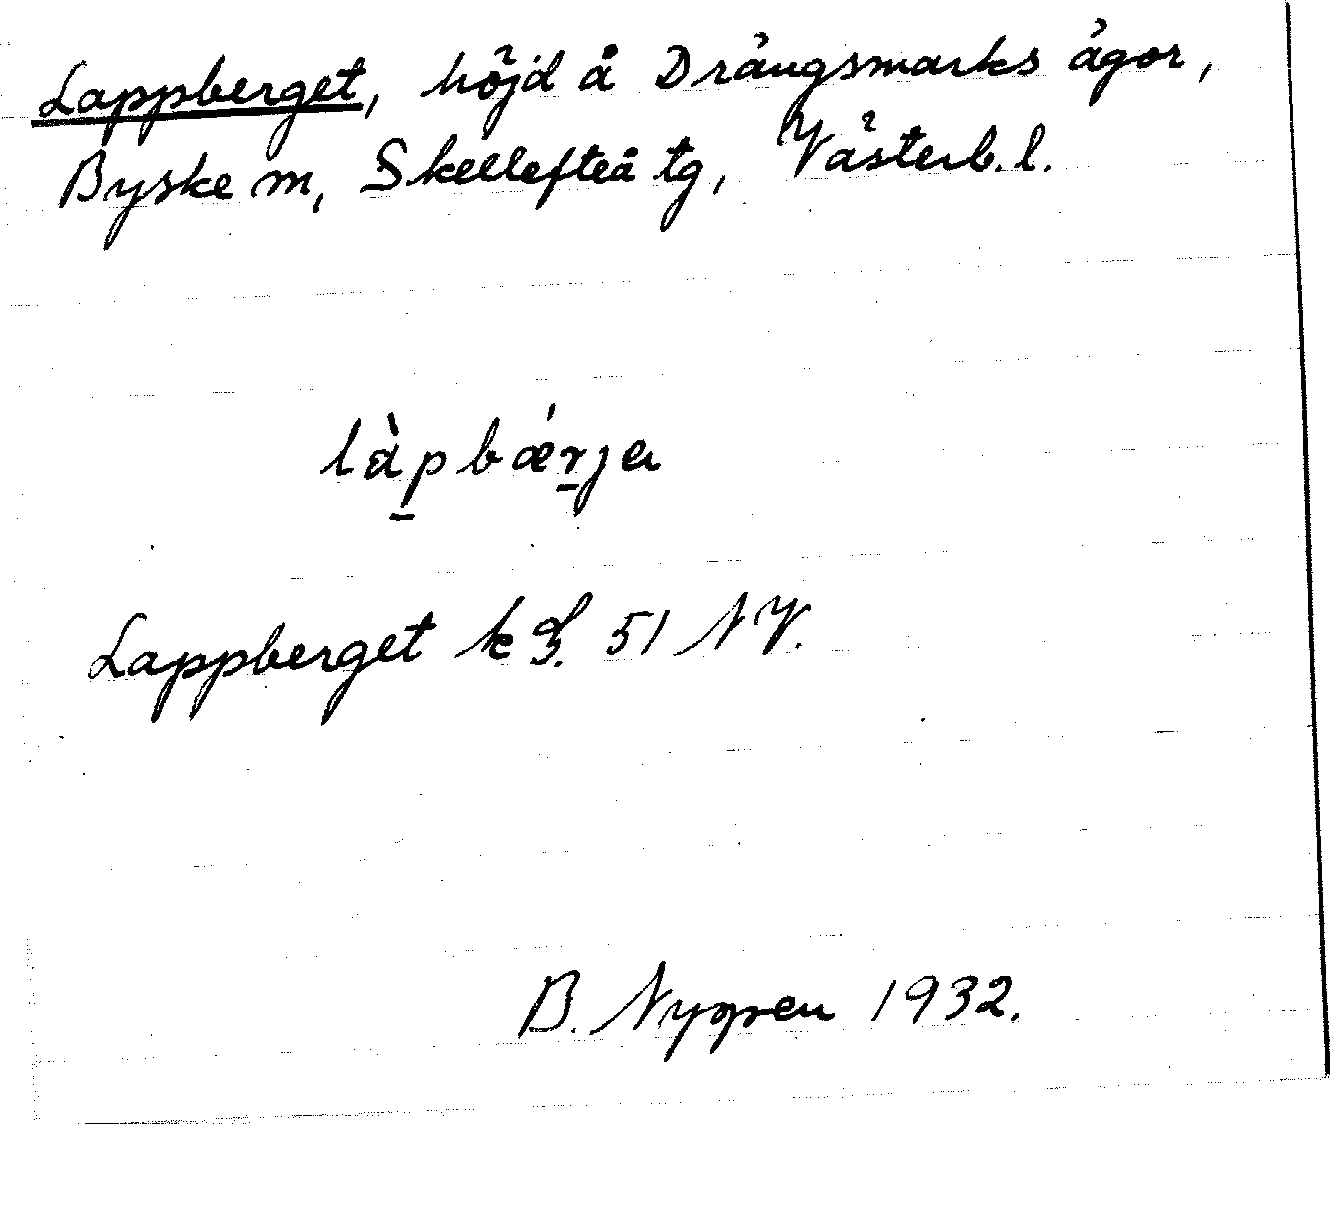 Lappberget, höjd å Drängsmarks ägor,
Byske m, Skellefteå tg, Västerb. l.
làpbǽrja
Lappberget 51 NV.
B. Nyppen 1932.